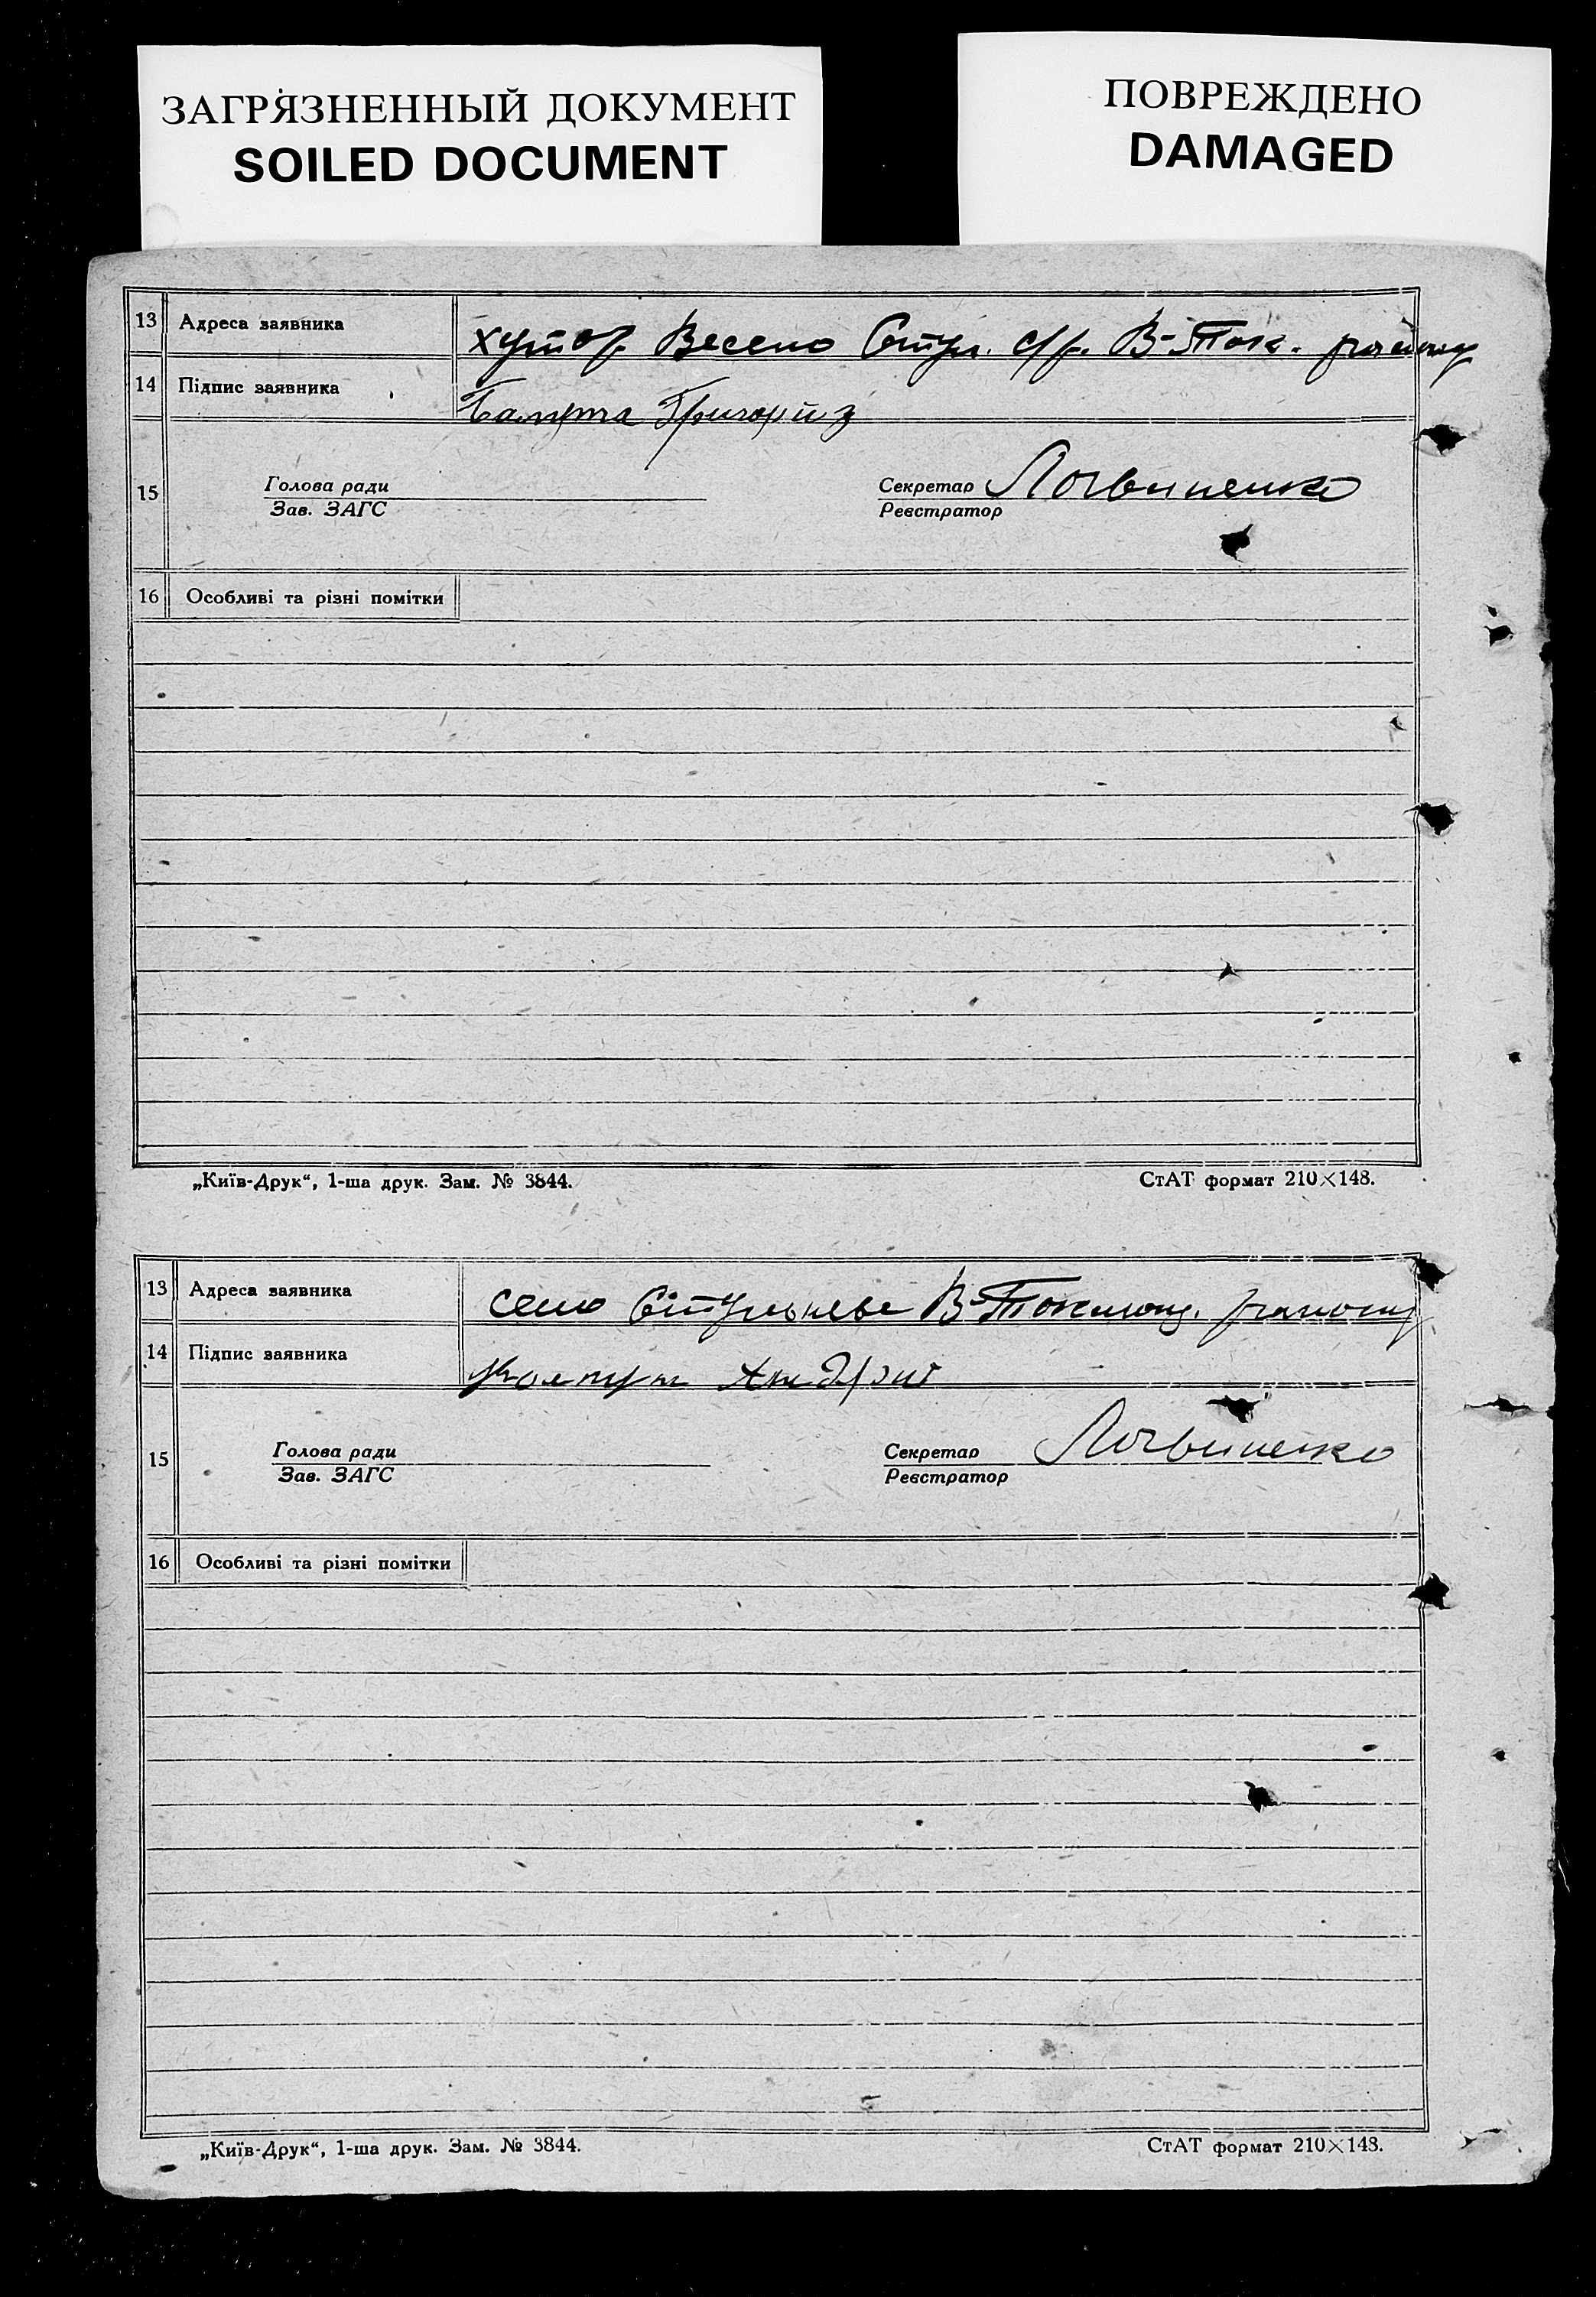 ЗАГРЯЗНЕННЫЙ ДОКУМЕНТ
SOILED DOCUMENT
ПОВРЕЖДЕНО
DAMAGED
13 Адреса заявника хутор Весело Стул. с/р. В-Ток. району
14 Підпис заявника Григорій
15 Голова ради Секретар Логвиненко
Зав. ЗАГС Реєстратор
16 Особливі та різні помітки
„Київ-Друк“, 1-ша друк. Зам. № 3844. СтАТ формат 210×148.
13 Адреса заявника село В-Токмац. району
14 Підпис заявника Андрій
15 Голова ради Секретар Логвиненко
Зав. ЗАГС Реєстратор
16 Особливі та різні помітки
„Київ-Друк“, 1-ша друк. Зам. № 3844. СтАТ формат 210×148.